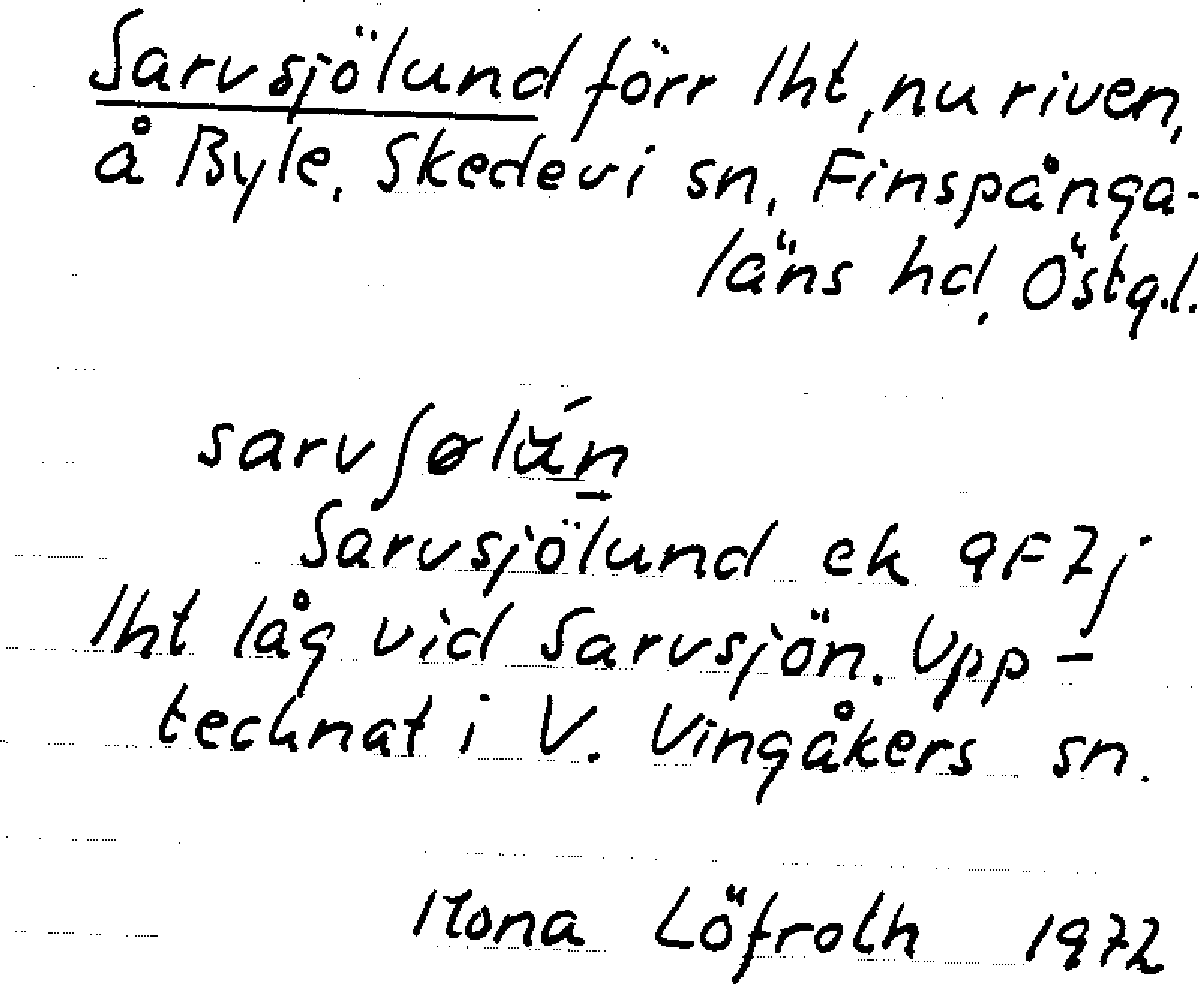 Sarvsjölund förr lht, nu riven,
å Byle, Skedevi sn, Finspånga-
läns hd, Östg.l.
sarvʃølún
Sarvsjölund ek 9F7j
lht låg vid Sarvsjön. Upp-
tecknat i V. Vingåkers sn.
Mona Löfroth 1972